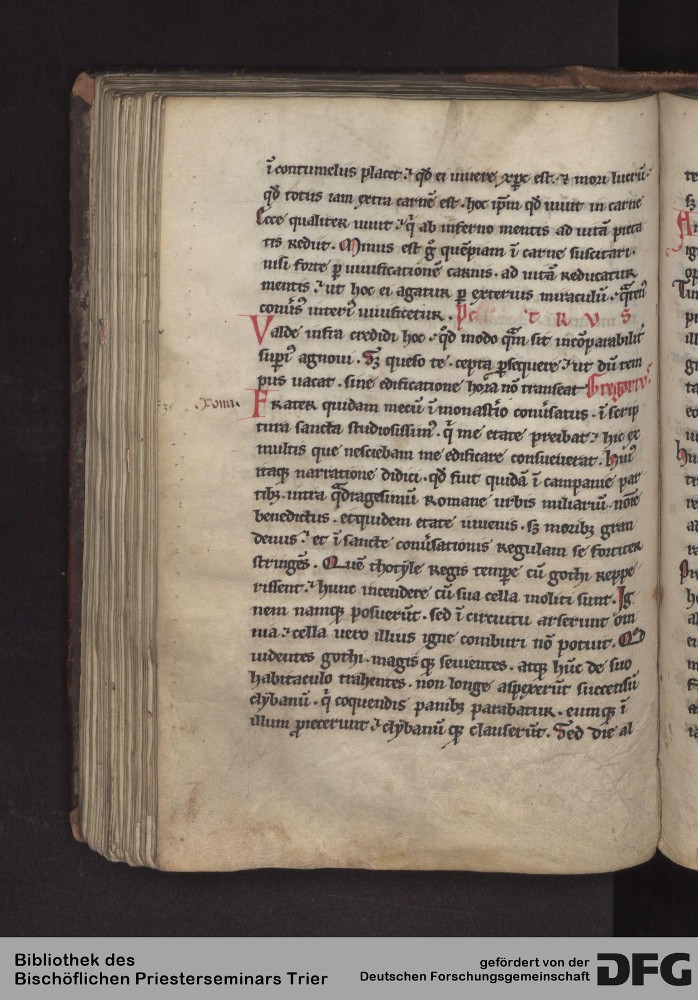 ī contumelus placet ⁊ qđ ei uiuere xp̄c est ⁊ mori lucrū·
qđ totus iam extra carnē est · hoc ip̄m qđ uiuit in carne
Ecce qualiter uiuit · q̄ ab inferno mentis ad uitā pieta
tis redut · Minus est g̊ quēpiam ī carne suscitari ·
nisi forte ꝑ uiuificationē carnis · ad uitā reducatur
mentis · ut hoc ei agatur ꝑ exterius miraculū · q̄ten⁹
conūsus interi⁹ uiuificetur · Petrus
Valde infra credidi hoc · qđ modo q̄m sit incōparabilit̄
superi⁹ agnoui · Sꝫ queso te · cepta ꝑsequere · ut dū tem
pus uacat · sine edificatione hora nō transeat Gregorius
·xxviii· Frater quidam mecū ī monastio conūsatus · ī scrip
tura sancta studiosissim⁹ · q̄ me etate preibat · hic ex
multis que nesciebam me edificare consueuerat · Hui⁹
itaqꝫ narratione didici · qđ fuit quidā ī campanie par
tibꝫ · intra q̄dragesimū romane urbis miliariū · noīe
benedictus · etquidem etate iuuenis · sꝫ moribꝫ gran
deuus · et ī sancte conūsationis regulam se fortiter
stringēs · Quē thotyle regis tempe cū gothi reppe
rissent · hunc incendere cū sua cella moliti sunt · Ig
nem namqꝫ posuerūt · sed ī circuitu arserunt om
nia · cella uero illius igne comburi nō potuit · Qđ
uidentes gothi · magis qꝫ seuientes · atqꝫ hūc de suo
habitaculo trahentes · non longe aspexerūt succensū
clybanū · q̄ coquendis panibꝫ parabatur · eumqꝫ ī
illum ꝓiecerunt · clybanū qꝫ clauserūt · Sed die al
Bibliothek des
Bischöflichen Priesterseminars Trier
gefördert von der
Deutschen Forschungsgemeinschaft
DFG